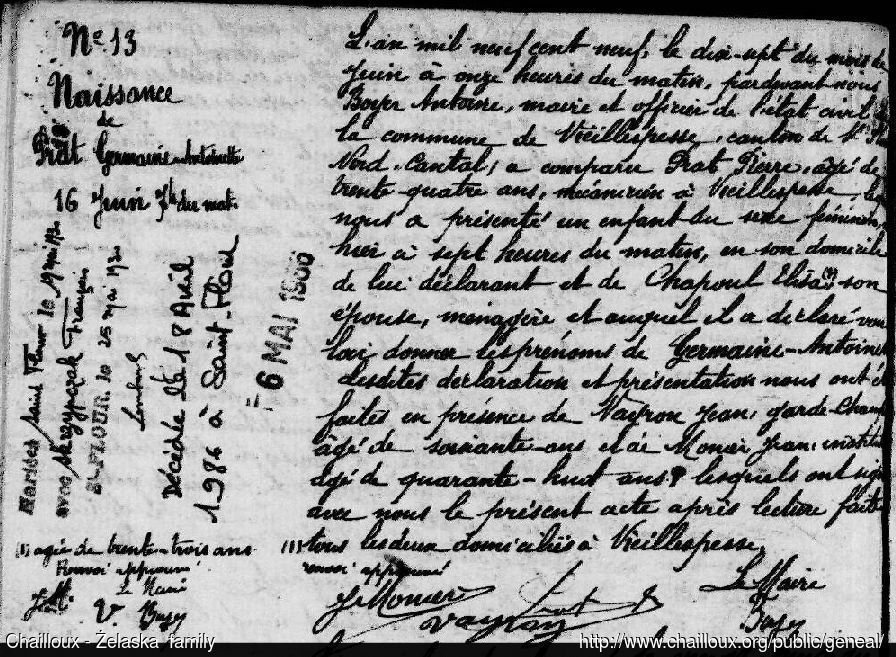 Nº 13
Naissance
de
Prat Germaine-Antoinette
16 Juin 7h du mat.
Mariée à Saint Flour le 19 mai 19
avec Skrzypczak François
St-FLOUR, le 25 mai 19
Décédée le 18 Avril
1986 à Saint-Flour
6 MAI 1986
(1) agée de trente-trois ans
Renvoi approuvé
J.M. Le Maire
V. Boyer
L'an mil neuf cent neuf, le dix-sept du mois de
Juin à onze heures du matin, pardevant nous
Boyer Antoine, maire et officier de l'état civil
la commune de Vieillespesse, canton de St
Nord, Cantal, a comparu Prat Pierre, âgé de
trente-quatre ans, mécanicien à Vieillespesse
nous a présenté un enfant du sexe féminin,
hier à sept heures du matin, en son domicile
de lui déclarant et de Chapoul Elisa (1) son
épouse, ménagère et auquel il a déclaré vou
loir donner les prénoms de Germaine-Antoine
lesdites déclaration et présentation nous ont
faites en présence de Vayron Jean, garde-Cham
âgé de soixante-ans et de Monier Jean, institu
âgé de quarante-huit ans, lesquels ont sig
avec nous le présent acte après lecture faite
(1) tous les deux domiciliés à Vieillespesse
renvoi approuvé
J Monier Vayron Prat Le Maire
Boyer
Chailloux - Żelaska family
http://www.chailloux.org/public/geneal/